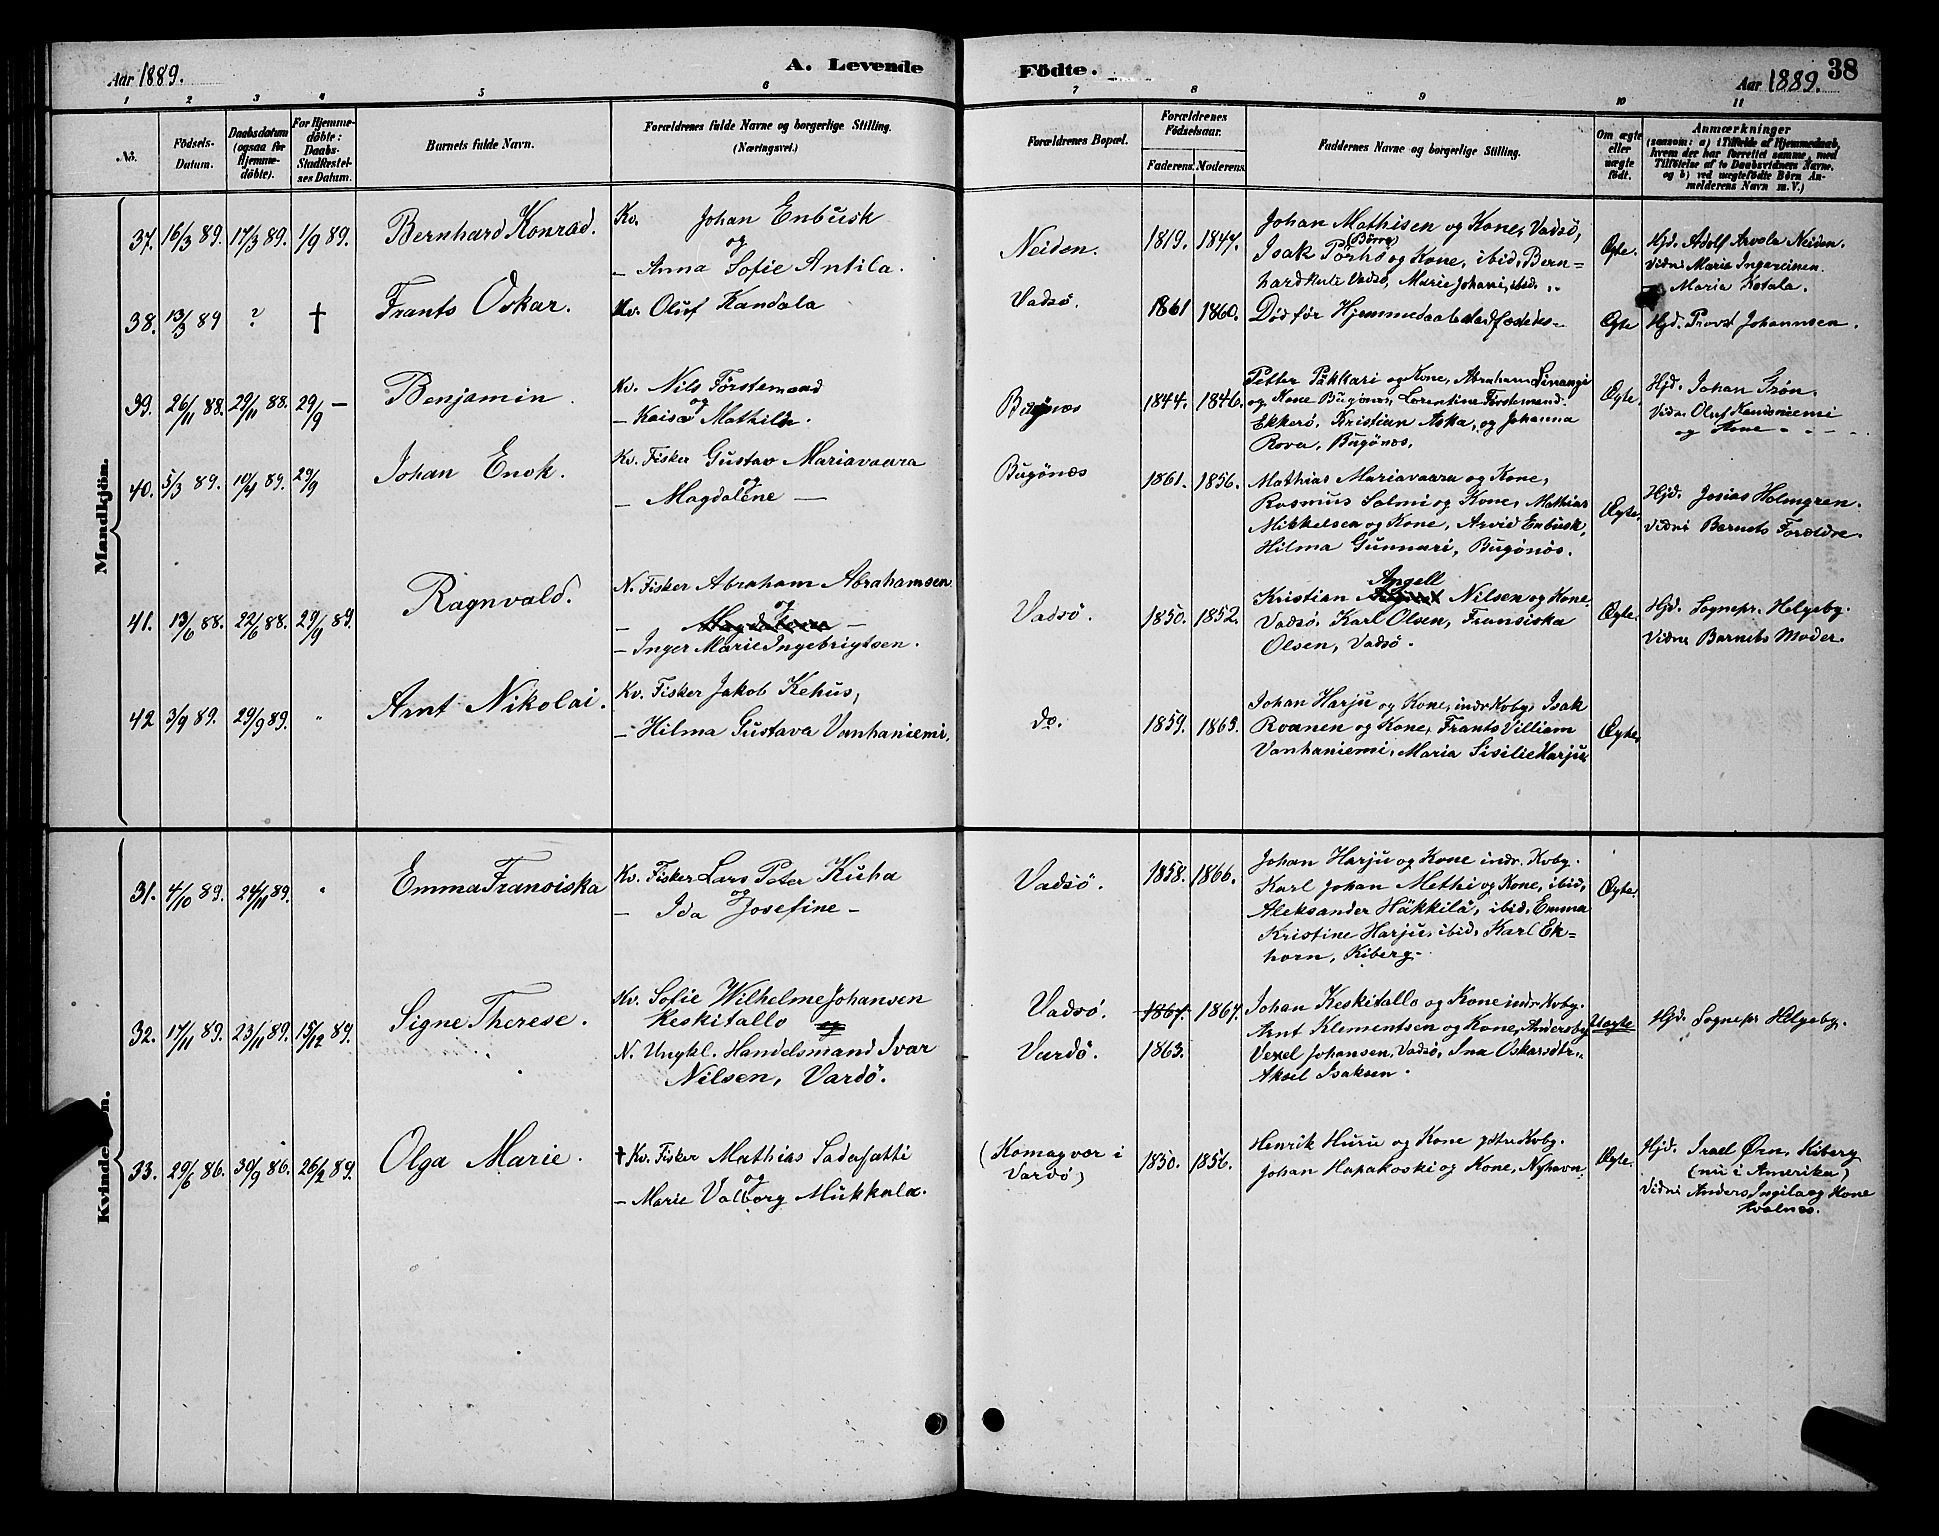 Aar 1889.
A. Levende
Födte.
Aar 1889.
38
1 2 3 4 5 6 7 8 9 10 11
No.
Födsels-Datum.
Daabsdatum (ogsaa for Hjemme-döbte).
For Hjemme-döbte: Daabs-Stadfæstel-ses Datum.
Barnets fulde Navn.
Forældrenes fulde Navne og borgerlige Stilling.
(Næringsvei.)
Forældrenes Bopæl.
Forældrenes Födselsaar.
Faderens. Moderens.
Faddernes Navne og borgerlige Stilling.
Om ægte eller uægte födt.
Anmærkninger
(saasom: a) i Tilfælde af Hjemmedaab, hvem der har forrettet samme, med Tilföielse af to Daabsvidners Navne. og b) ved uægtefödte Börn An-melderens Navn m. V.)
Mandkjön.
37. 16/3 89. 17/3 89. 1/9 89. Bernhard Konrad.
Kv. Johan Enbusk
og
– Anna Sofie Antila.
Neiden. 1819. 1847.
Johan Mathisen og Kone, Vadsö,
(Börre)
Isak Pörhö og Kone, ibid, Bern=
hard Kule Vadsö, Marie Johani, ibid.
Ægte.
Hjd. Adolf Arvola Neiden.
Vidni Maria Ingereinen.
– Maria Kotala.
38. 13/3 89 ? † Frants Oskar.
Kv. Oluf Kandala
Vadsö. 1861 1860.
Död för Hjemmedaab stadfæstedes.
Ægte
Hjd. Provst Johannsen.
39. 26/11 88. 29/11 88. 29/9 – Benjamin.
Kv. Nils Förstemand
og
– Kaisa Mathilde.
Bugönæs 1844. 1846.
Petter Pükkari og Kone, Abraham Linangi
og Kone Bugönæs, Lorentine Förstemand.
Ekkerö, Kristian Aska, og Johanna
Rova, Bugönæs.
Ægte.
Hjd. Johan Grön.
Vidni Oluf
og Kone
40. 5/3 89. 10/4 89. 29/9 Johan Enok.
Kv. Fisker Gustav Mariavaara
og
– Magdalene –
Bugönæs 1861. 1856.
Mathias Mariavaara og Kone,
Rasmus Salmi og Kone, Mathias
Mikkelsen og Kone, Arvid Enbusk,
Hilma Gunnari, Bugönæs.
Ægte.
Hjd. Josias Holmgren.
Vidni Barnets Forældre.
41. 13/6 88. 22/6 88. 29/9 89. Ragnvald.
N. Fisker Abraham Abrahamsen
og
– Magdalena –
– Inger Marie Ingebrigtsen.
Vadsö. 1850. 1852.
Angell
Kristian Nilsen og Kone,
Vadsö, Karl Olsen, Fransiska
Olsen, Vadsö.
Ægte.
Hjd. Sognepr. Helgeby.
Vidni Barnets Moder.
42 3/9 89. 29/9 89. " Arnt Nikolai.
Kv. Fisker Jakob Kehus,
– Hilma Gustava Vanhaniemi.
do. 1859. 1863.
Johan Harju og Kone, indr Koby, Isak
Roanen og Kone, Frants Villiam
Vanhaniemi, Maria Sisilie Harju.
Ægte.
Kvindekjön.
31. 4/10 89. 24/11 89. " Emma Fransiska
Kv. Fisker Lars Peter Kuha
og
– Ida Josefine –
Vadsö. 1858. 1866.
Johan Harju og Kone indr. Koby.
Karl Johan Methi og Kone, ibid,
Aleksander Häkkilä, ibid, Emma
Kristine Harju, ibid, Karl Ek=
horn, Kiberg.
Ægte.
32. 17/11 89. 23/11 89. 15/12 89. Signe Therese.
Kv. Sofie Wilhelme Johansen
Keskitallo og
N. Ungkl. Handelsmand Ivar
Nilsen, Vardö.
Vadsö. 1867. 1867.
Vardö. 1863.
Johan Keskitallo og Kone indr Koby.
Arnt Klementsen og Kone, Andersby
Vexel Johansen, Vadsö, Ina Oskarsdtr.,
Aksel Isaksen.
Uægte
Hjd. Sognepr Helgeby.
33. 29/6 86. 30/9 86. 26/12 89. Olga Marie.
† Kv. Fisker Mathias Sadefatti
og
– Marie Valborg Mukkala.
(Komagvær i
Vardö)
1850. 1856.
Henrik Huru og Kone ydtr Koby.
Johan Hapakoski og Kone, Nyhavn.
Ægte.
Hjd. Israel Örn, Kiberg
(nu i Amerika)
Vidni Anders Ingila og Kone
Kvalnes.